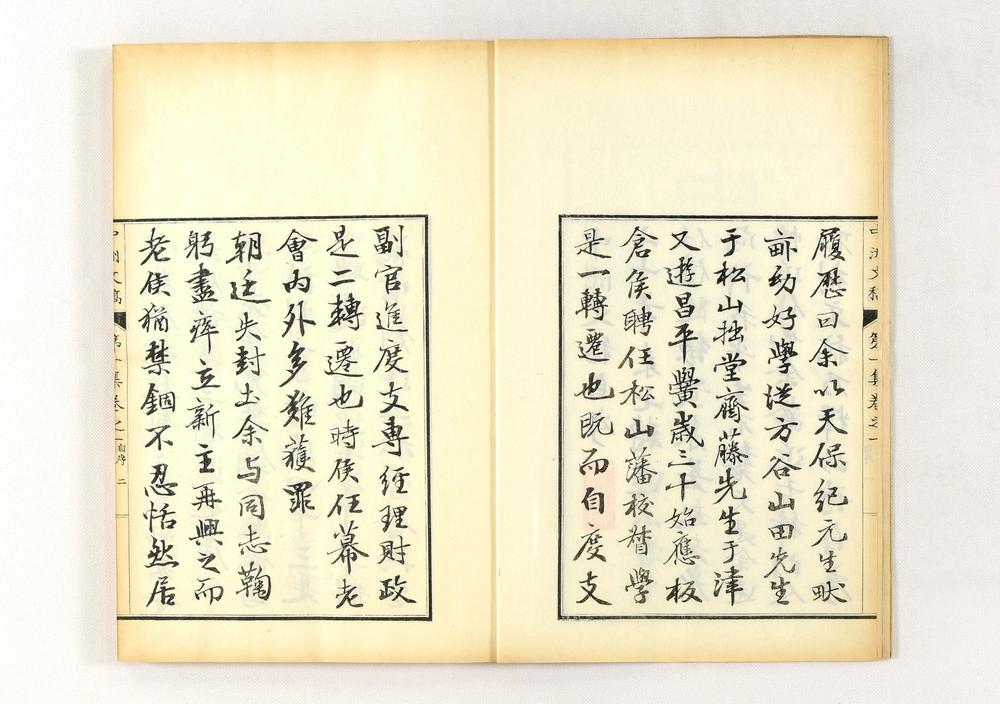 履歷曰余以天保紀元生畎
畝幼好學從方谷山田先生
于松山拙堂齋藤先生于津
又遊昌平黌歲三十始應板
倉侯聘任松山藩校督學
是一轉遷也既而自度支
副官進度支專經理財政
是二轉遷也時侯任幕老
會內外多難獲罪
朝廷失封土余与同志鞠
躬盡瘁立新主再興之而
老侯猶禁錮不忍恬然居
第一集卷之一
自序
二